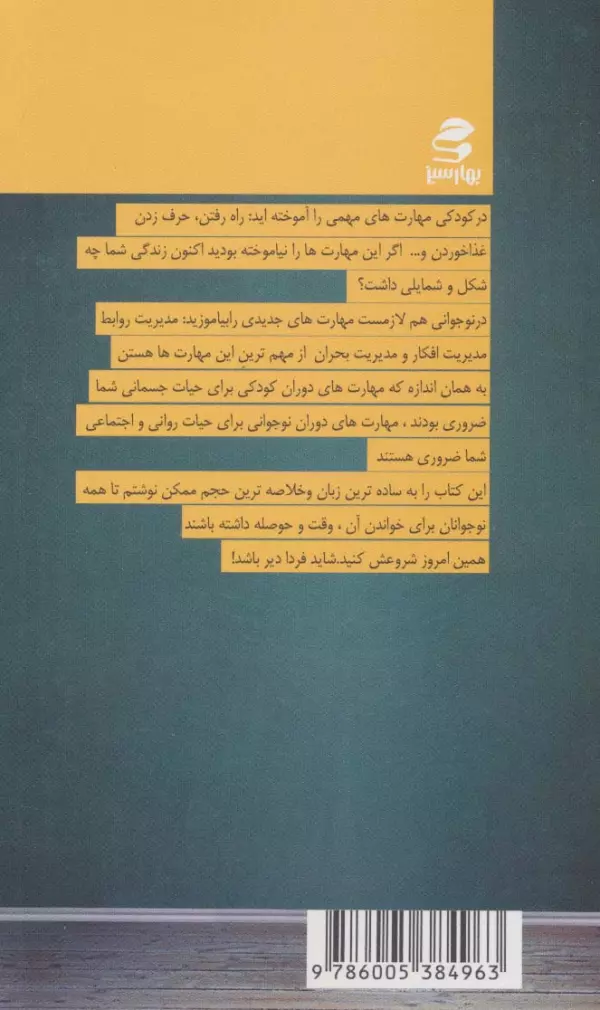 بهارسبز
درکودکی مهارت های مهمی را آموخته اید: راه رفتن، حرف زدن
غذاخوردن و... اگر این مهارت ها را نیاموخته بودید اکنون زندگی شما چه
شکل و شمایلی داشت؟
درنوجوانی هم لازمست مهارت های جدیدی رابیاموزید: مدیریت روابط
مدیریت افکار و مدیریت بحران از مهم ترین این مهارت ها هستن
به همان اندازه که مهارت های دوران کودکی برای حیات جسمانی شما
ضروری بودند ، مهارت های دوران نوجوانی برای حیات روانی و اجتماعی
شما ضروری هستند
این کتاب را به ساده ترین زبان وخلاصه ترین حجم ممکن نوشتم تا همه
نوجوانان برای خواندن آن ، وقت و حوصله داشته باشند
همین امروز شروعش کنید.شاید فردا دیر باشد!
9 786005 384963